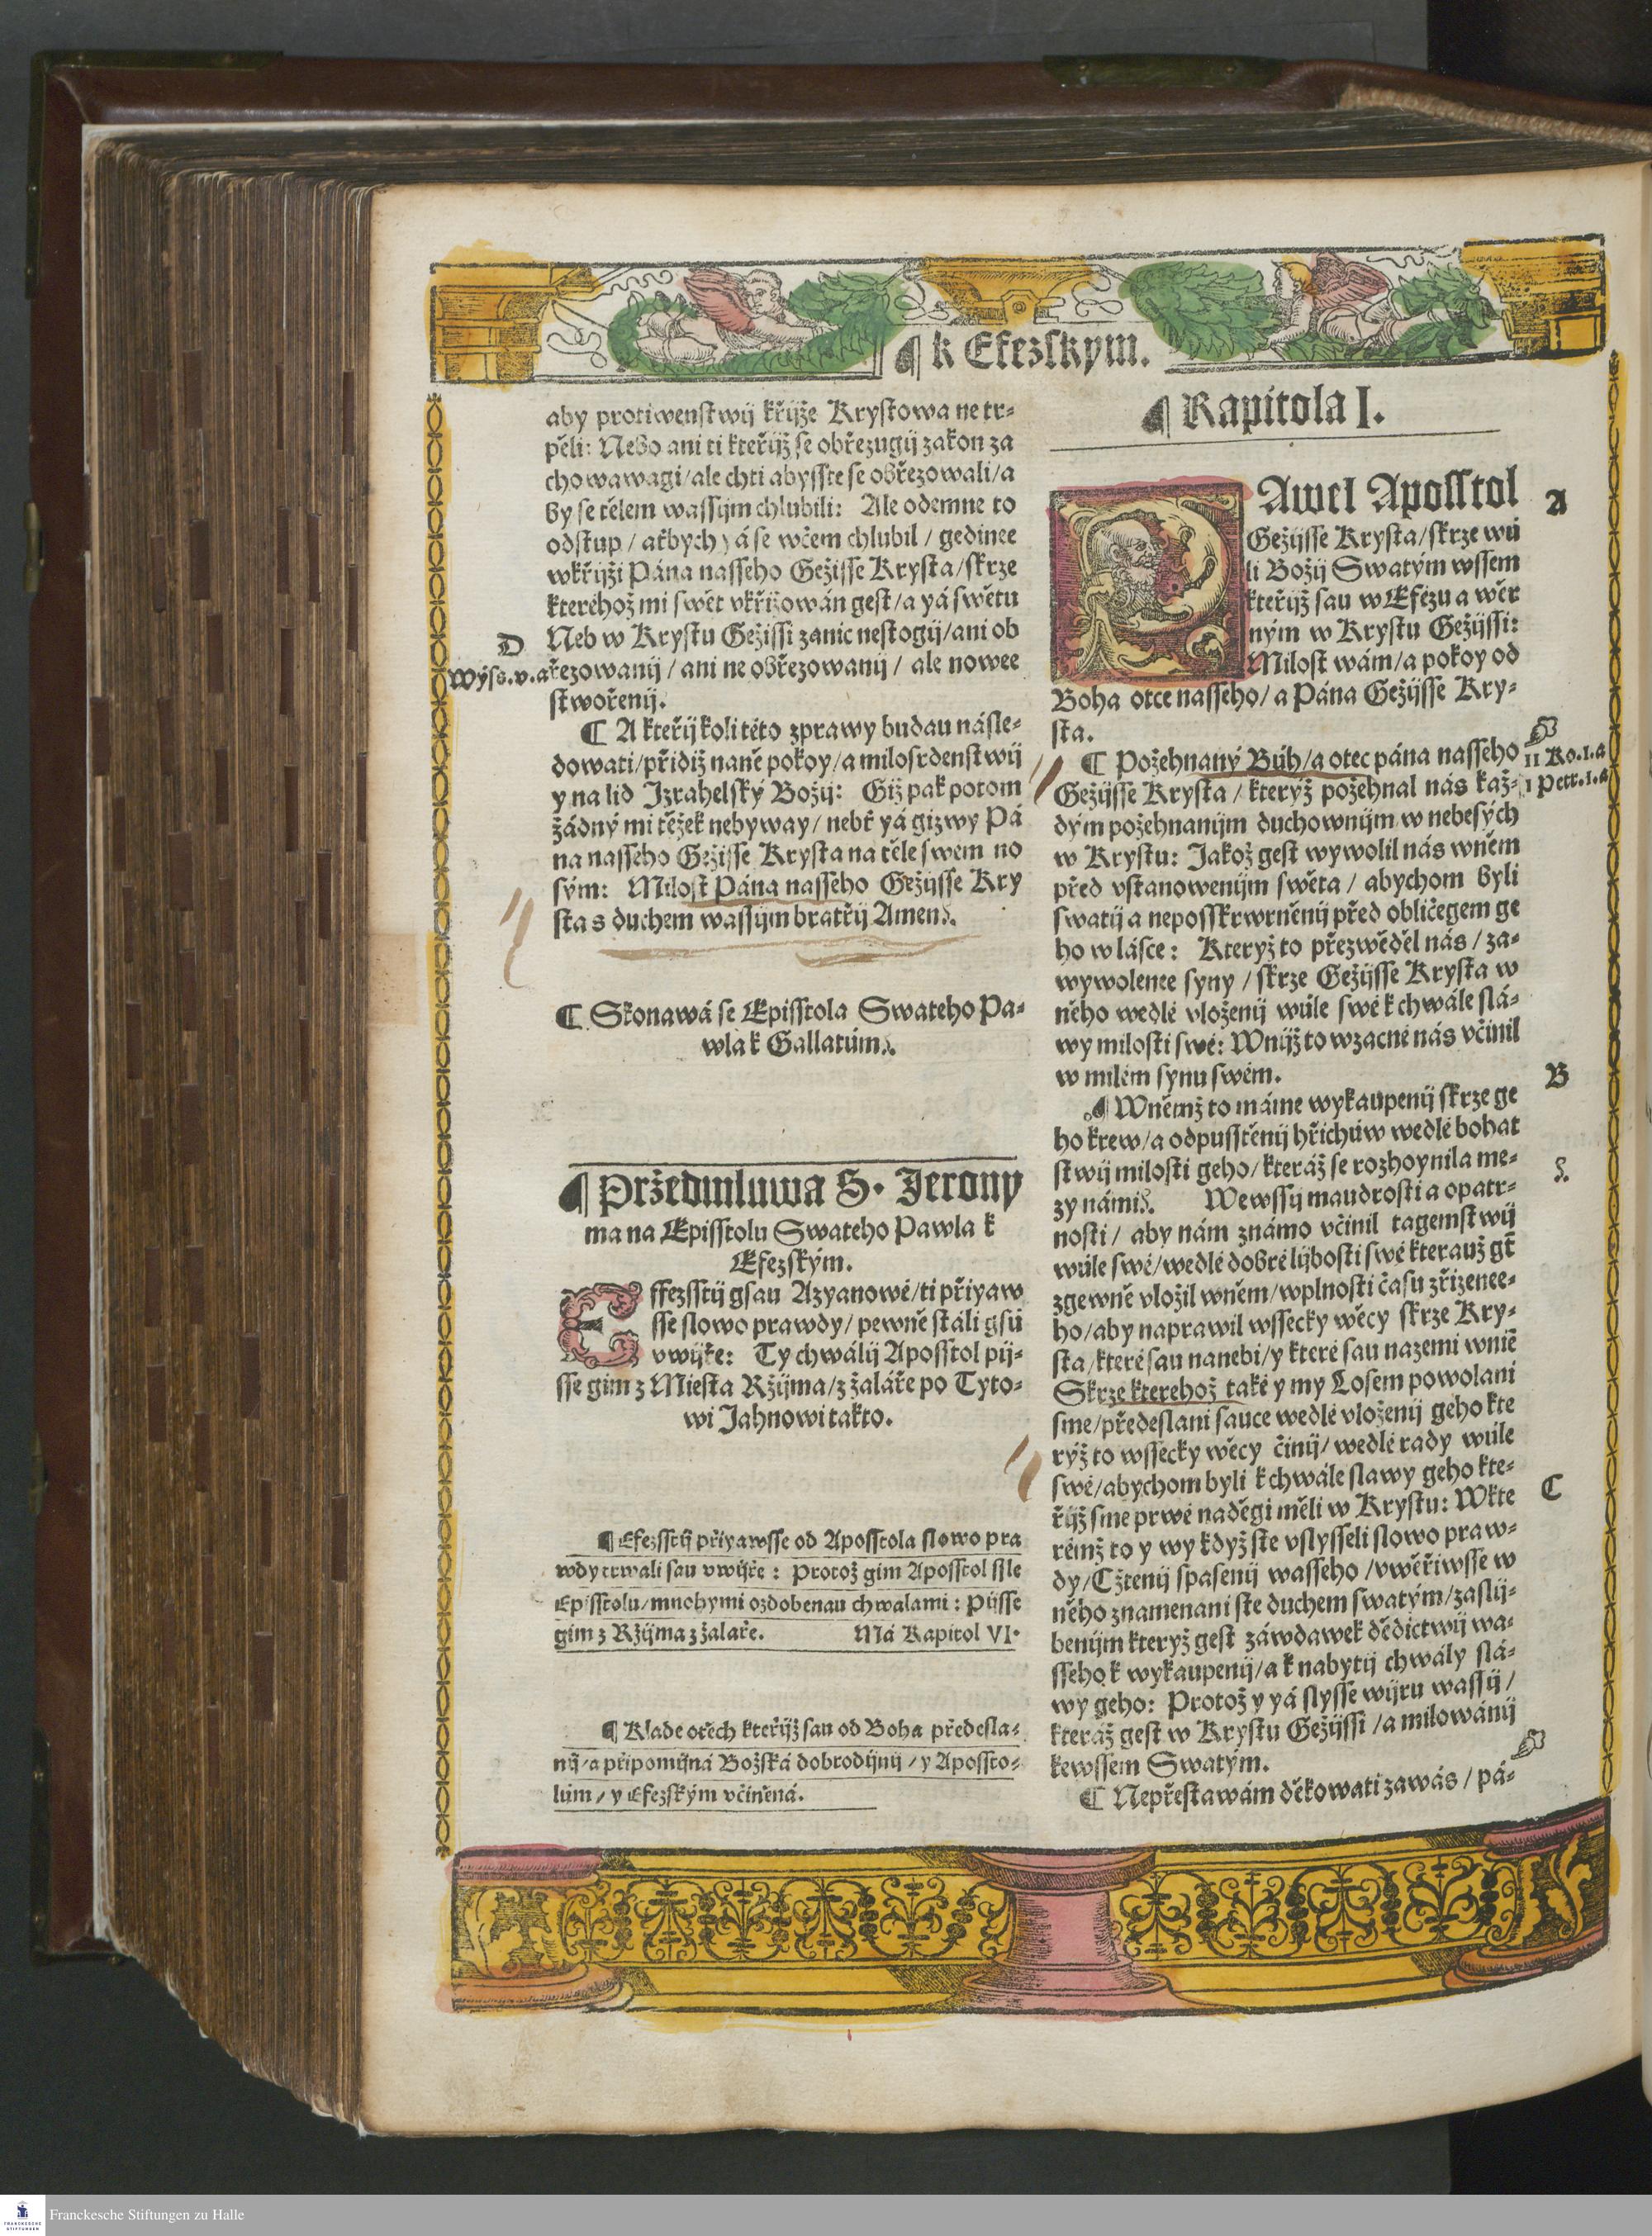 ¶ k Efezskym.
aby protiwenstwij křijže Krystowa ne tr-
pěli: Nebo ani ti kteřijž se obřezugij zakon za
chowawagi/ale chti abysste se obřezowali/a
by se tělem wassijm chlubili: Ale odemne to
odstup / atbych yá se wčem chlubil / gedinee
wkřijži Pána nasseho Gežijsse Krysta/skrze
kteréhož mi swět vkřižowán gest/a yá swětu
D
Neb w Krystu Gežissi zanic nestogij/ani ob
Wýss.v.a
řezowanij / ani ne obřezowanij / ale nowee
stwořenij.
¶ A kteřij koli této zprawy budau násle-
dowati/přidiž naně pokoy/a milosrdenstwij
y na lid Jzrahelský Božij: Giž pak potom
žádný mi těžek nebyway/ nebť yá gizwy Pá
na nasseho Gežisse Krysta na těle swem no
sým: Milost Pána nasseho Gežijsse Kry
sta s duchem wassijm bratřij Amen.
¶ Skonawá se Episstola Swateho Pa-
wla k Gallatúm.
¶ Pržedmluwa S. Jerony
ma na Episstolu Swateho Pawla k
Efezským.
Effezsstij gsau Azyanowé/ti přiyaw
sse slowo prawdy/ pewně stáli gsú
vwijře: Ty chwálij Aposstol pij-
sse gim z Miesta Ržijma/z žaláře po Tyto-
wi Jahnowi takto.
¶ Efezsstij přiyawsse od Aposstola slowo pra
wdy trwali sau vwijře : Protož gim Aposstol ssle
Episstolu/mnohymi ozdobenau chwalami : Pijsse
gim z Ržijma z žalaře. Má Kapitol VI.
¶ Klade otěch kteřijž sau od Boha předesla-
nij/a připomijná Božská dobrodijnij / y Apossto-
lúm / y Efezským včiněná.
¶ Kapitola I.
PAwel Aposstol
A
Gežijsse Krysta/skrze wú
li Božij Swatým wssem
kteřijž sau w Efézu a wěr
ným w Krystu Gežijssi:
Milost wám/a pokoy od
Boha otce nasseho/ a Pána Gežijsse Kry-
sta.
¶ Požehnaný Búh/a otec pána nasseho
II Ko.I.a
Gežijsse Krysta / kterýž požehnal nás kaž-
I Petr.I.a
dým požehnanijm duchownijm w nebesých
w Krystu: Jakož gest wywolil nás wněm
před vstanowenijm swěta / abychom byli
swatij a neposskwrněnij před obličegem ge
ho w lásce: Kteryž to přezwěděl nás / za-
wywolenee syny / skrze Gežijsse Krysta w
něho wedlé vloženij wúle swé k chwále slá-
wy milosti swé: Wnijž to wzacné nás včinil
w milém synu swém.
B
¶ Wněmž to máme wykaupenij skrze ge
ho krew/a odpusstěnij hřichúw wedlé bohat
stwij milosti geho/ kteráž se rozhoynila me-
zy námi. Wewssij maudrosti a opatr-
nosti / aby nám známo včinil tagemstwij
wúle swé/wedlé dobré lijbosti swé kterauž gt
zgewně vložil wněm/wplnosti času zřízenee-
ho/aby naprawil wssecky wěcy skrze Kry-
sta/které sau nanebi/y které sau nazemi wnie
Skrze kterehož také y my Losem powolani
sme/předeslani sauce wedlé vloženij geho kte
rýž to wssecky wěcy činij/ wedlé rady wúle
swé/abychom byli k chwále slawy geho kte-
C
řijž sme prwé naděgi měli w Krystu: Wkte
rémž to y wy když ste vslysseli slowo praw-
dy/Cžtenij spasenij wasseho /vwěřiwsse w
něho znamenani ste duchem swatým/zaslij-
benijm kteryž gest záwdawek dědictwij wa-
sseho k wykaupenij/a k nabytij chwály slá-
wy geho: Protož y yá slysse wijru wassij /
kteráž gest w Krystu Gežijssi /a milowánij
kewssem Swatým.
¶ Nepřestawám děkowati zawás / pá-
Franckesche Stiftungen zu Halle